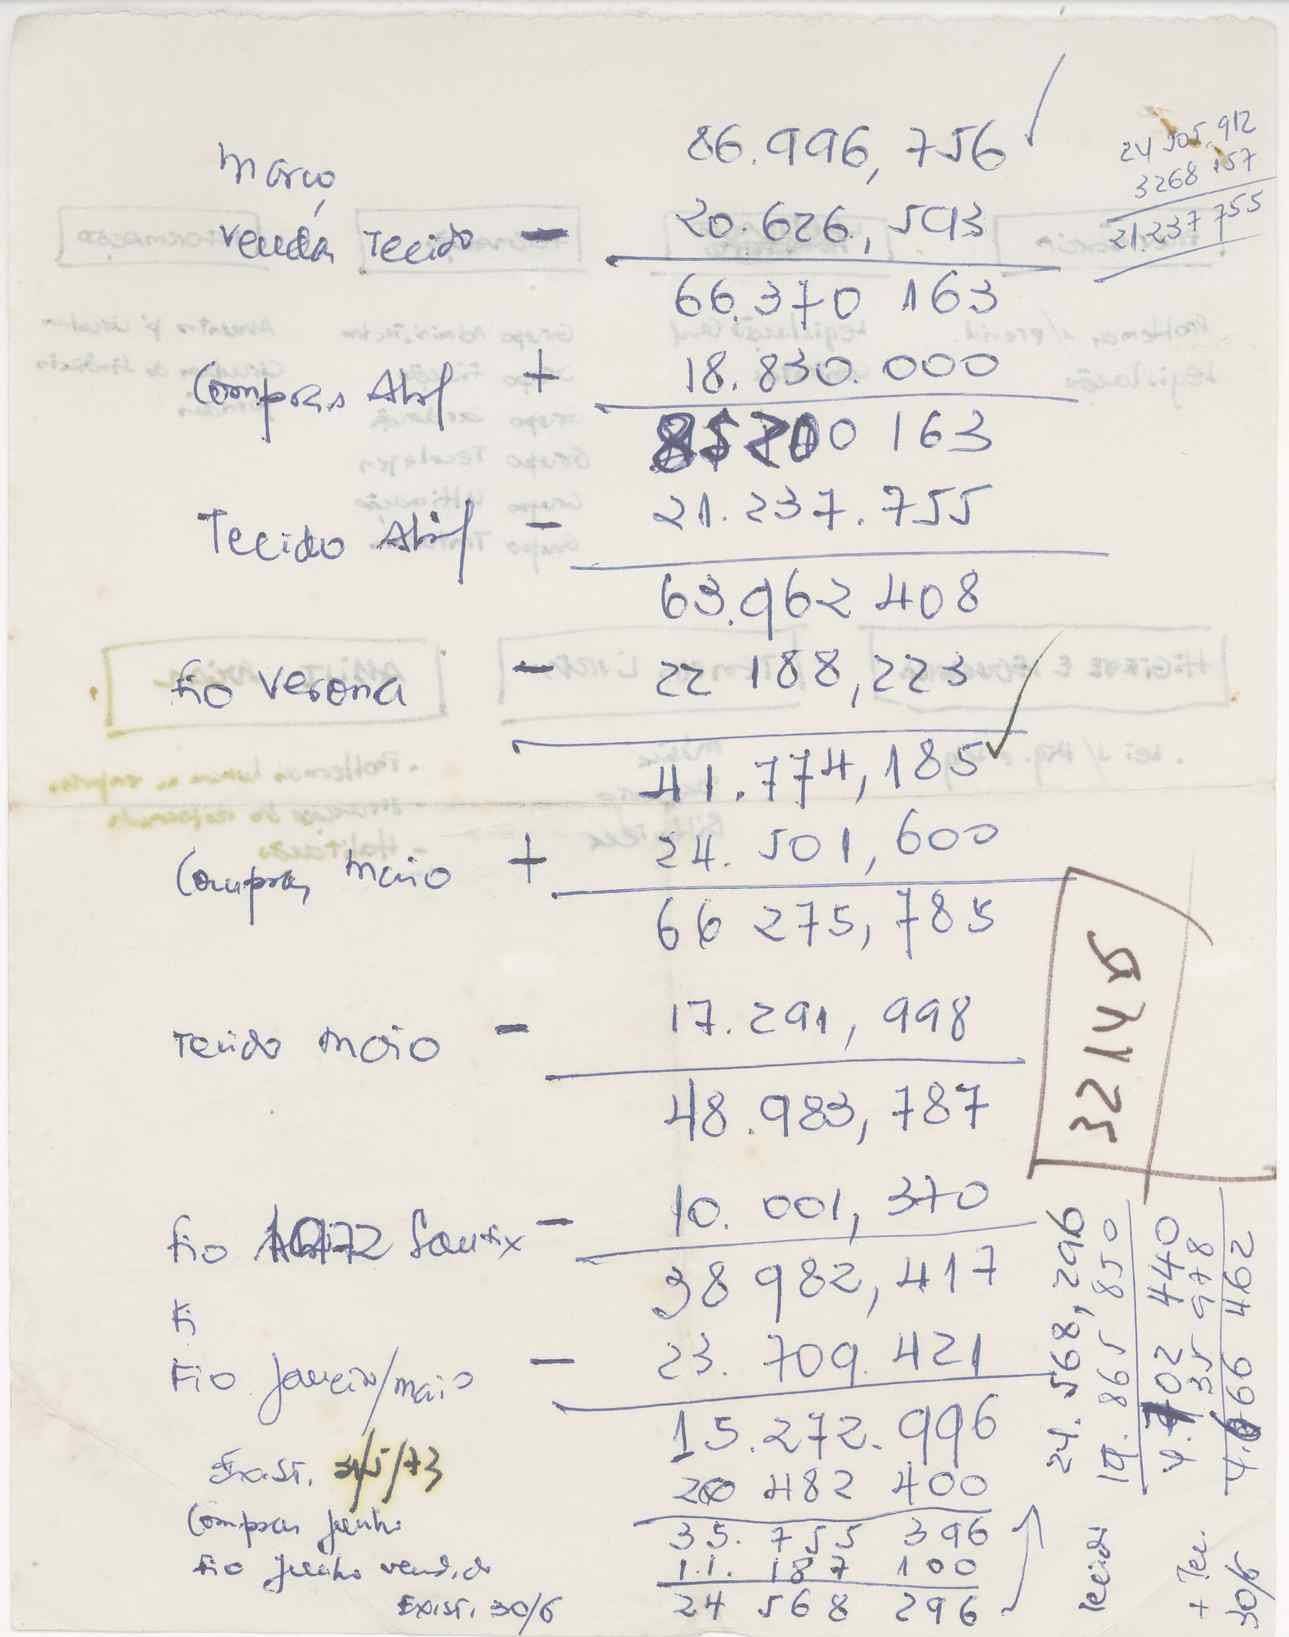 86.996,756
Março,
venda Tecido - 20.626,593
66.370 163
Compras Abril + 18.830.000
85200 163
Tecido Abril - 21.237.755
63.962 408
fio verona - 22 188,223
41.774,185
Compras maio + 24.501,600
66 275,785
Tecido maio - 17.291,998
48.983,787
fio 1972 - 10.001,370
38 982,417
Fi
Fio Janeiro/maio - 23.709.421
15.272.996
Exist. 31/5/73
20 482 400
Compras Junho
35.755 396
fio Junho vendido 11.187 100
Exist. 30/6 24 568 296
24 505.912
3268 157
21.237 755
32145
24.568,296
19.865 850
4.702 440
35 978
4.666 462
Tecido
+ Tec.
30/6